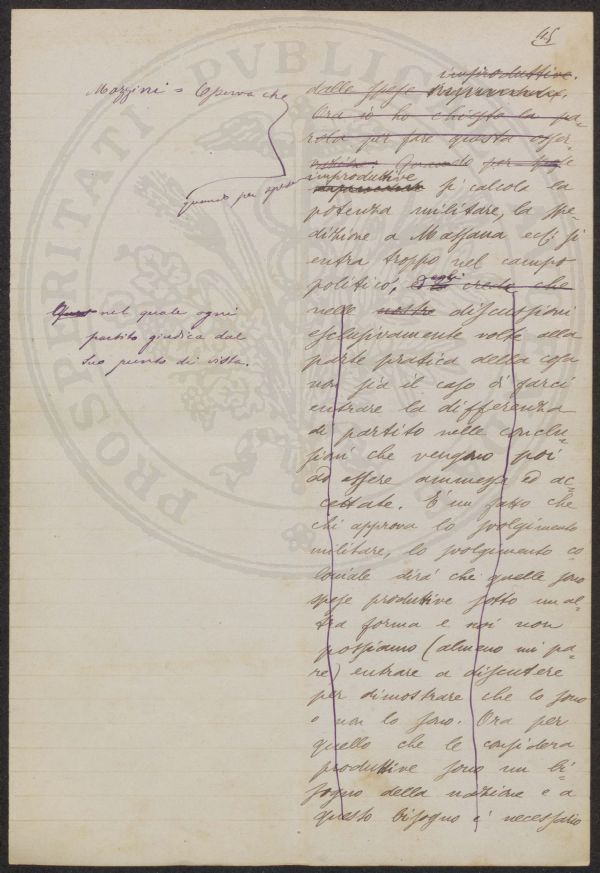 45
improduttive.
Mazzini = Osserva che
quando per spese
dalle spese
Ora io ho chiesto la pa-
rola per fare questa osser-
vazione: Quando per spese
improdutive
si calcola la
potenza militare, la spe-
dizione a Massaua ecc. si
entra troppo nel campo
politico, egli crede che
nelle nostre discussioni
esclusivamente volte alla
parte pratica della cosa
non sia il caso di farci
entrare la differenza
di partito nelle conclu-
sioni che vengono poi
ad essere ammesse ed ac-
cettate. È un fatto che
chi approva lo svolgimento
militare, lo svolgimento co-
loniale dirà che quelle sono
spese produttive sotto un al-
tra forma e noi non
possiamo (almeno mi pa-
re) entrare a discutere
per dimostrare che lo sono
o non lo sono. Ora per
quello che le considera
produttive sono un bi-
sogno della nazione e a
questo bisogno è necessario
nel quale ogni
partito giudica dal
suo punto di vista.
PROSPERITATI PVBLICAE